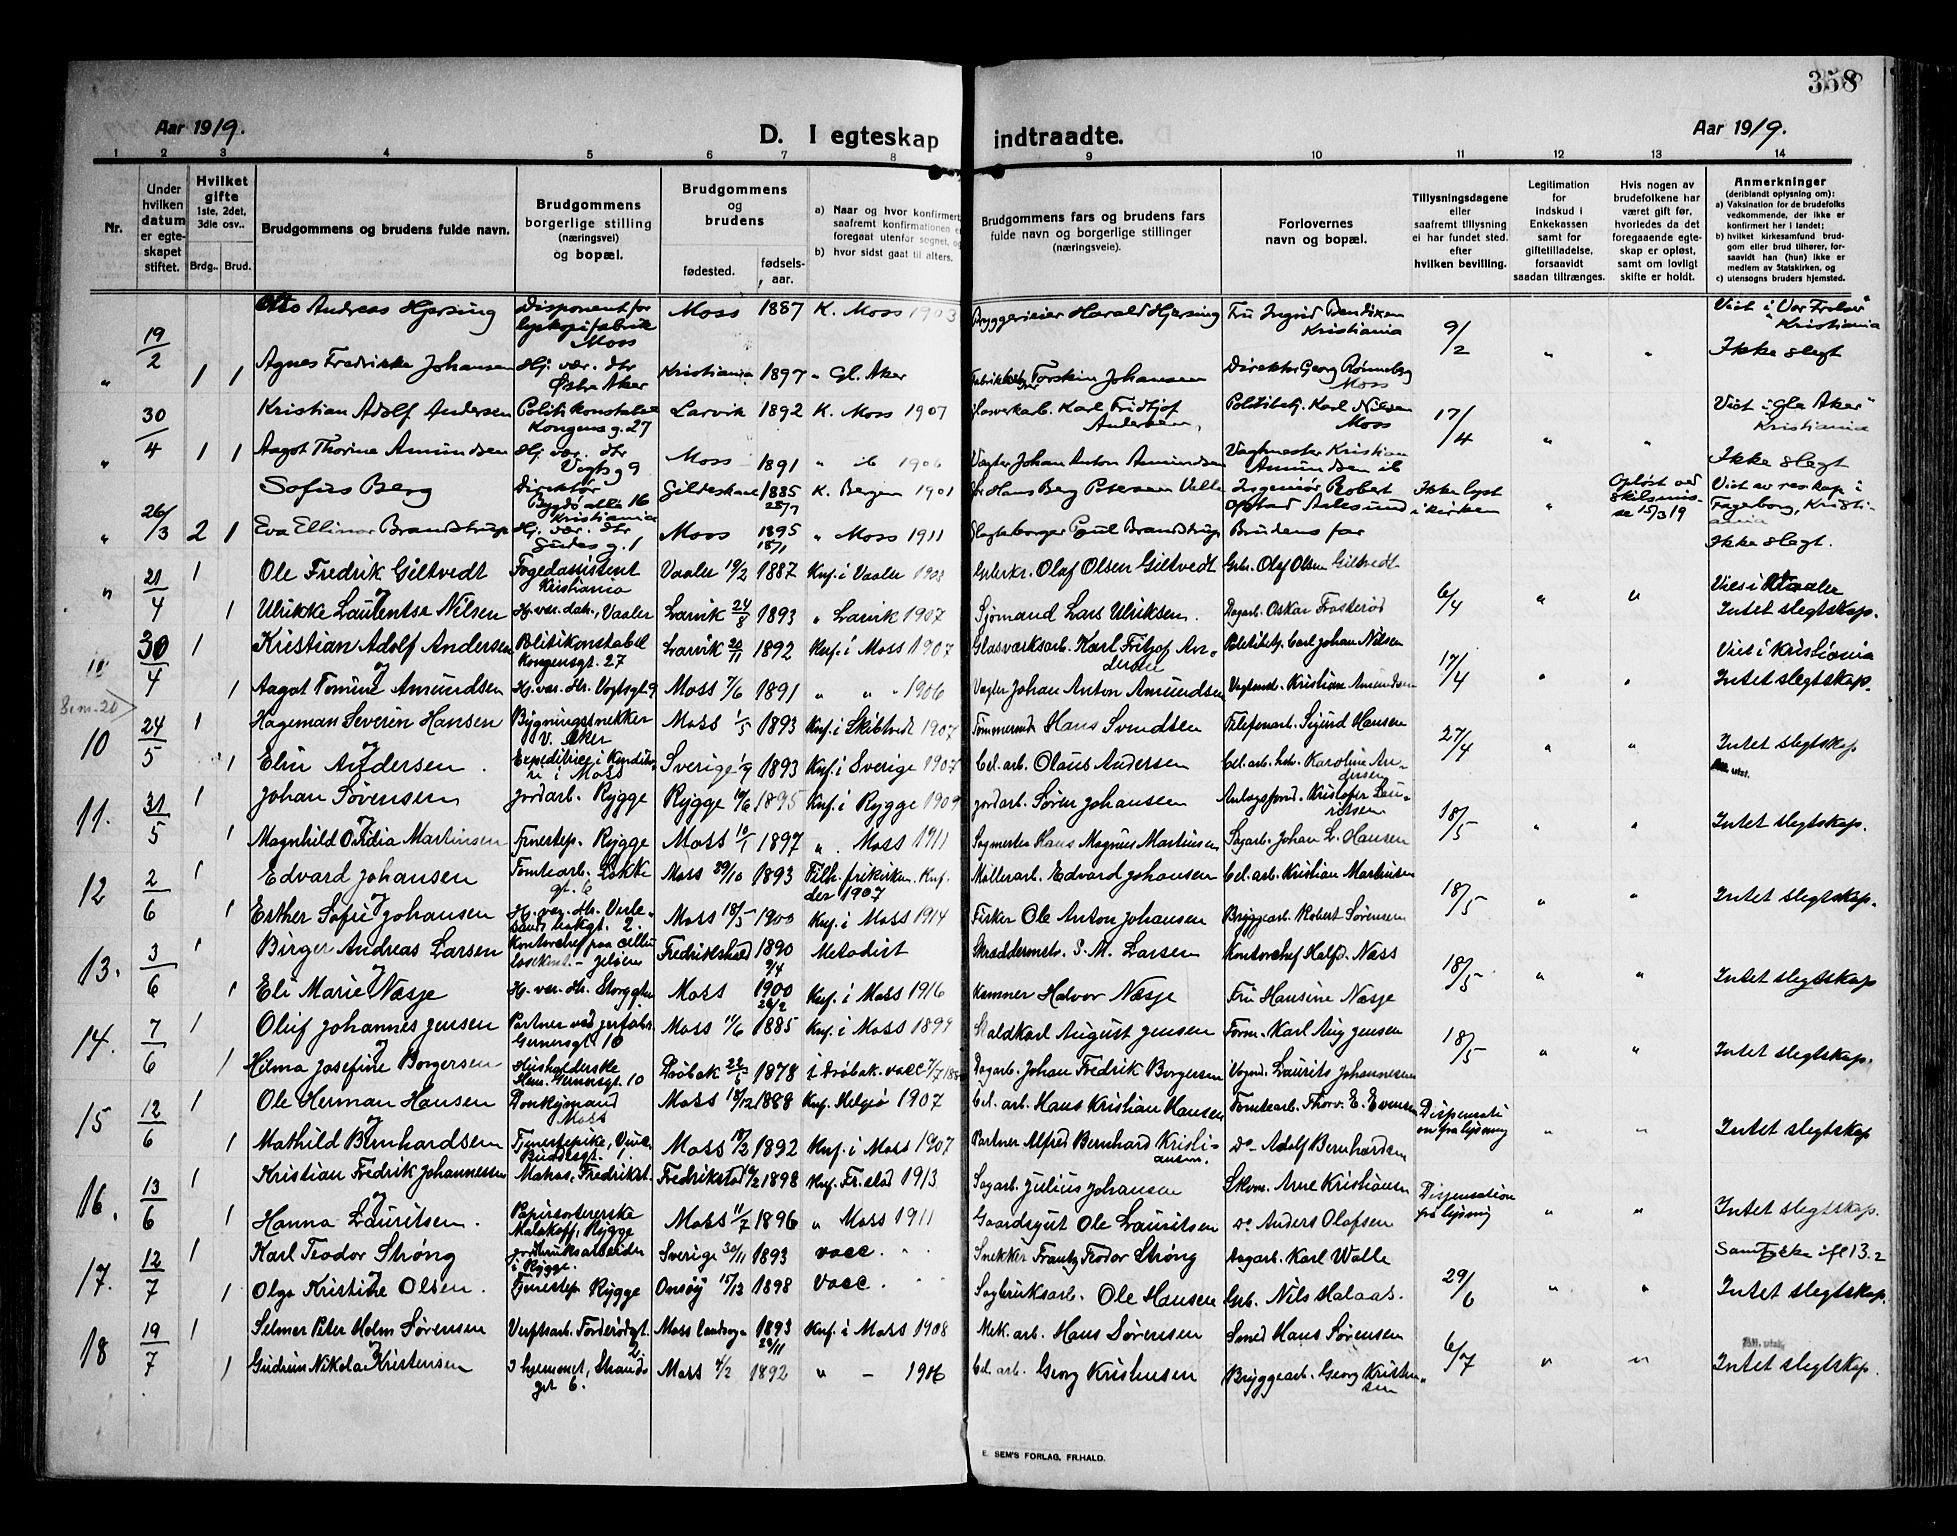 358
Aar 1919.
D. I egteskap indtraadte.
Aar 1919.
1 2 3 4 5 6 7 8 9 10 11 12 13 14
Nr.
Under hvilken datum er egteskapet stiftet.
Hvilket gifte 1ste, 2det, 3die osv..
Brdg.. Brud.
Brudgommens og brudens fulde navn.
Brudgommens borgerlige stilling (næringsvei) og bopæl.
Brudgommens og brudens
fødested. fødsels-aar.
a) Naar og hvor konfirmert, saafremt konfirmationen er foregaat utenfor sognet, og
b) hvor sidst gaat til alters.
Brudgommens fars og brudens fars fulde navn og borgerlige stillinger (næringsveie).
Forlovernes navn og bopæl.
Tillysningsdagene eller saafremt tillysning ei har fundet sted. efter hvilken bevilling.
Legitimation for indskud i Enkekassen samt for giftetilladelse, forsaavidt saadan tiltrænges.
Hvis nogen av brudefolkene har været gift før, hvorledes da det foregaaende egteskap er opløst, samt om lovligt skifte er holdt.
Anmerkninger
(deriblandt oplysning om):
a) Vaksination for de brudefolks vedkommende, der ikke er konfirmert her i landet;
b) hvilket kirkesamfund brudgom eller brud tilhører, forsaavidt han (hun) ikke er medlem av Statskirken, og
c) utensogns bruders hjemsted.
Otto Andreas Hjersing Disponent for Moss Moss 1887 K. Moss 1903 Bryggerieier Harald Hjersing Fru Ingrid Bendixen Kristiania
19/2 9/2 " " Viet i "Vor Frelser" Kristiania
" 1 1 Agnes Fredrikke Johansen Hj. vær. dtr Østre Aker Kristiania 1897 " Gl. Aker Torstein Johansen Direktør Georg Rønneberg Moss Ikke slegt
30/4 Kristian Adolf Andersen Politikonstabel Kongens g. 27 Larvik 1892 K. Moss 1907 Glasverkarb. Karl Fridtjof Andersen, Politibetj. Karl Nilsen Moss 17/4 " " Viet i "Gle Aker" Kristiania
" 1 1 Aagot Thorine Amundsen Hj. vær. dtr Vogts g 9 Moss 1891 " ib 1906 Vagter Johan Anton Amundsen Vagtmester Kristian Amundsen ib Ikke slegt
26/3 Sofus Berg Direktør Bygdø alle 16 Kristiania Gildeskaal 1885 25/7 K. Bergen 1901 Hans Berg Petersen Valle Ingeniør Robert Opstad Aalesund Ikke lyst i kirken " Opløst ved skilsmisse 15/3 19 Viet av res kap i Fagerborg, Kristiania
" 2 1 Eva Ellinor Brandstrup Hj. vær. dtr Gudes g. 1 Moss 1895 18/1 " Moss 1911 Poul Brandstrup Brudens far Ikke slegt.
21/4 1 Ole Fredrik Giltvedt Fogedassistent Kristiania Vaaler 19/2 1887 Knf. i Vaaler 1903 Grbr. Olaf Olsen Giltvedt Grb. Olaf Olsen Giltvedt 6/4 " " Viet i Vaaler
" 1 Ulrikke Laurentse Nilsen Hj. vær. datr., Vaaler Larvik 24/8 1893 " Larvik 1907 Sjømand Lars Ulriksen. Dagarb. Oskar Frosterød Intet slegtskap.
30/4 1 Kristian Adolf Andersen Politikonstabel Kongensgt. 27 Larvik 20/11 1892 Knf. i Moss 1907 Glasværksarb. Karl Fritjof Andersen Politibetj. Carl Johan Nilsen 17/4 " " Viet i Kristiania
1 Aagot Tomine Amundsen Hj. vær. dtr. Vogtsgt 9 Moss 7/6 1891 " " 1906 Vagter Johan Anton Amundsen Vagtmd. Kristian Amundsen Intet slegtskap.
10 24/5 1 Hageman Severin Hansen Bygningssnekker V. Aker Moss 1/5 1893 Knf. i Skibtvedt 1907 Tømmermd Hans Svendsen Telefonarb. Sigurd Hansen 27/4 " "
1 Elin Andersen. Expeditrice i Konditori i Moss Sverige 1/9 1893 Knf. i Sverige 1907 Cel. arb. Olaus Andersen Cel. arb. Karoline Andersen Intet slegtskap
Att. utst.
11. 31/5 1 Johan Sørensen Jordarb. Rygge Rygge 10/6 1895 Knf. i Rygge 1909 Jordarb. Søren Johansen Anlægsford. Kristofer Lauritsen 18/5 " "
1 Magnhild Ovidia Martinsen Tjenestep. Rygge Moss 10/1 1897 " Moss 1911 Sagmester Hans Magnus Martinsen Sagarb. Johan L. Hansen Intet slegtskap.
12 2/6 1 Edvard Johansen Tomtearb. Løkkegt. 6 Moss 30/10 1893 Tilh. frikirken. Knf. der 1907 Møllerarb. Edvard Johansen Cel. arb. Kristian Martinsen 18/5 " "
1 Esther Sofie Johansen Hj. vær. dtr. Verlesandsbakgt. 2. Moss 18/5 1900 Knf. i Moss 1914 Fisker Ole Anton Johansen Bryggearb. Robert Sørensen Intet slegtskap.
13. 3/6 1 Birger Andreas Larsen Kontorchef paa cellulosekont. - Jeløen Fredrikshald 1890 9/4 Metodist Skræddermstr. S. M. Larsen Kontorchef Halfd. Næss 18/5 " "
1 Eli Marie Næsje Hj. vær. dtr. Storggt. Moss 1900 26/2 Knf. i Moss 1916 Kemner Halvor Næsje Fru Hansine Næsje Intet slegtskap
14. 7/6 1 Oluf Johannes Jensen Portner ved jernfabr. Gernersgt. 10 Moss 11/6 1885 Knf. i Moss 1899 Staldkarl August Jensen Form. Karl Aug Jensen 18/5 " "
1 Hilma Josefine Borgersen Husholderske Gernersgt. 10 Drøbak 22/6 1878 i Drøbak. vacc 7/7 188 Dagarb. Johan Fredrik Borgersen Vognd. Laurits Johannesen Intet slegtskap.
15 12/6 1 Ole Herman Hansen Donkeymand Moss Moss 18/12 1888 Knf. Helgø 1907 Cel. arb. Hans Kristian Hansen Tomtearb. Thorv. E. Evensen Dispensation fra lysning " "
1 Mathild Bernhardsen Tjenestepike, Moss 18/2 1892 Knf. i Moss 1907 Portner Alfred Bernhard Kristiansen. Do Adolf Bernhardsen Intet slegtskap
16. 13/6 1 Kristian Fredrik Johannessen Matros, Fredrikst. Fredrikstad 10/2 1898 Knf. Fr. stad 1913 Sagarb. Julius Johansen Arne Kristiansen Dispensation fra lysning " "
1 Hanna Lauritsen. Papirsortererske Malakoff, Rygge Moss 11/7 1896 " Moss 1911 Gaardsgut Ole Lauritsen Do Anders Olafsen Intet slegtskap.
17. 12/7 1 Karl Teodor Strøng Jordbruksarbeider i Rygge. Sverige 30/11 1893 vacc. Snekker Frantz Teodor Strøng Dagarb. Karl Walle 29/6 " " Samtykke if § 13.2
1 Olga Kristine Olsen. Tjenestep. Rygge Onsøy 15/12 1898 vacc. Sagbruksarb. Ole Hansen Grb. Nils Halaas. Intet slegtskap.
18 19/7 1 Selmer Peter Holm Sørensen Verftsarb. Torderødgt. 2. Moss landsogn 1893 29/11 Knf. i Moss 1908 Mek. arb. Hans Sørensen Smed Hans Sørensen 6/7 " " Att. utst.
1 Gudrun Nikolai Kristensen I hjemmet, Strandgt 6. Moss 4/2 1892 " - 1906 Cel. arb. Georg Kristensen Bryggearb. Georg Kristensen Intet slegtskap.
E. SEM'S FORLAG, FR.HALD.